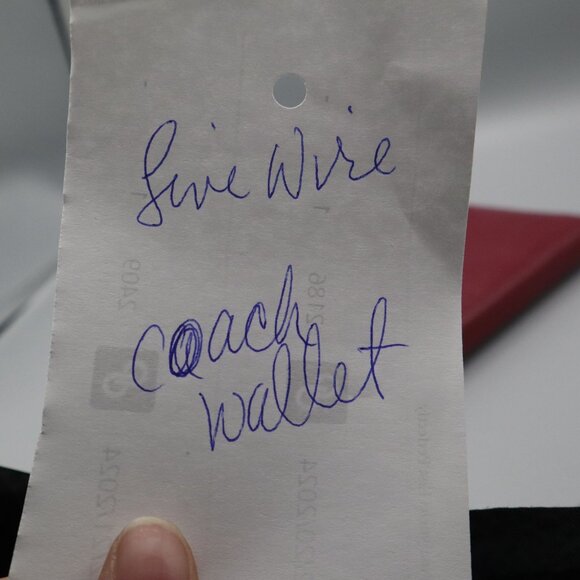 Live Wire
Coach
wallet